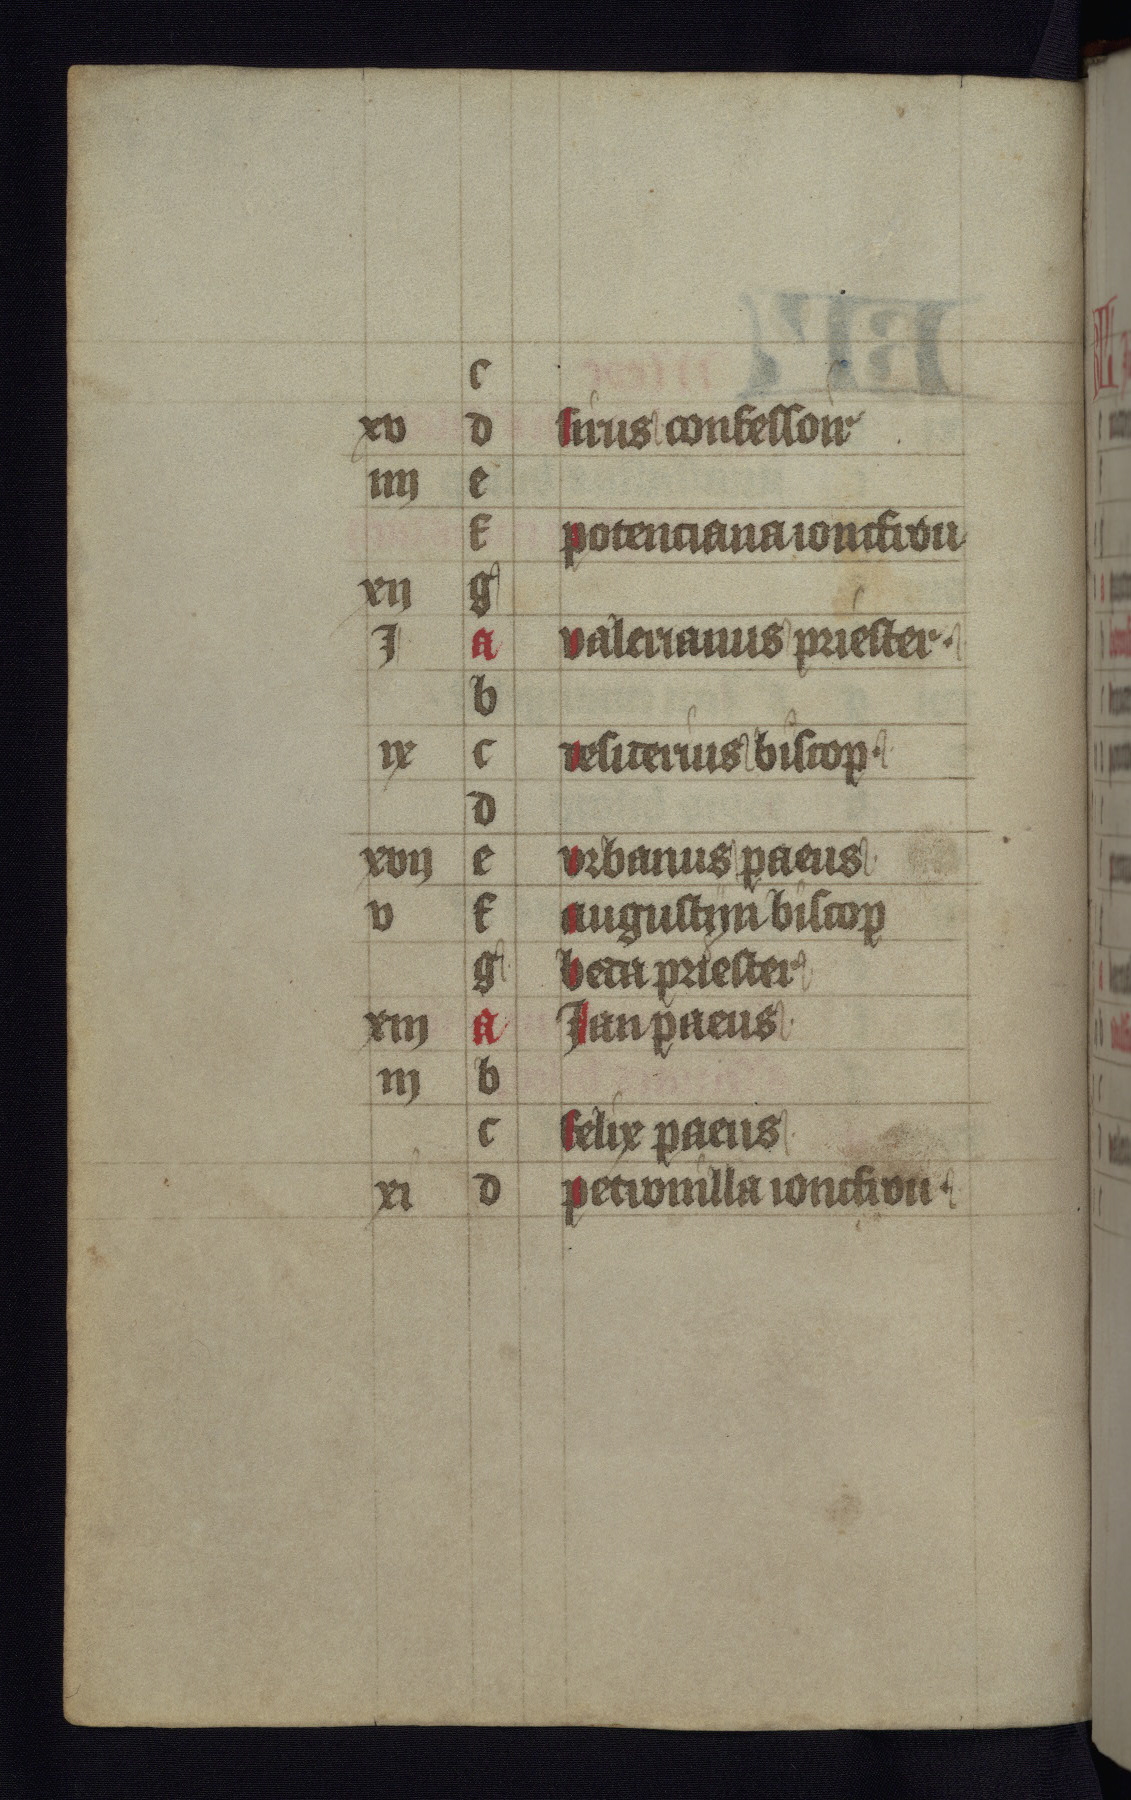 c
xv d sirus confessoir
iiij e
f potenciana ioncfrou
xij g
J a valerianus priester
b
ix c desiterius biscop
d
xvij e vrbanus paeus
v f augustijn biscop
g beda priester
xiij a Jan paeus
iij b
c felix paeus
xi d petronilla ioncfrou